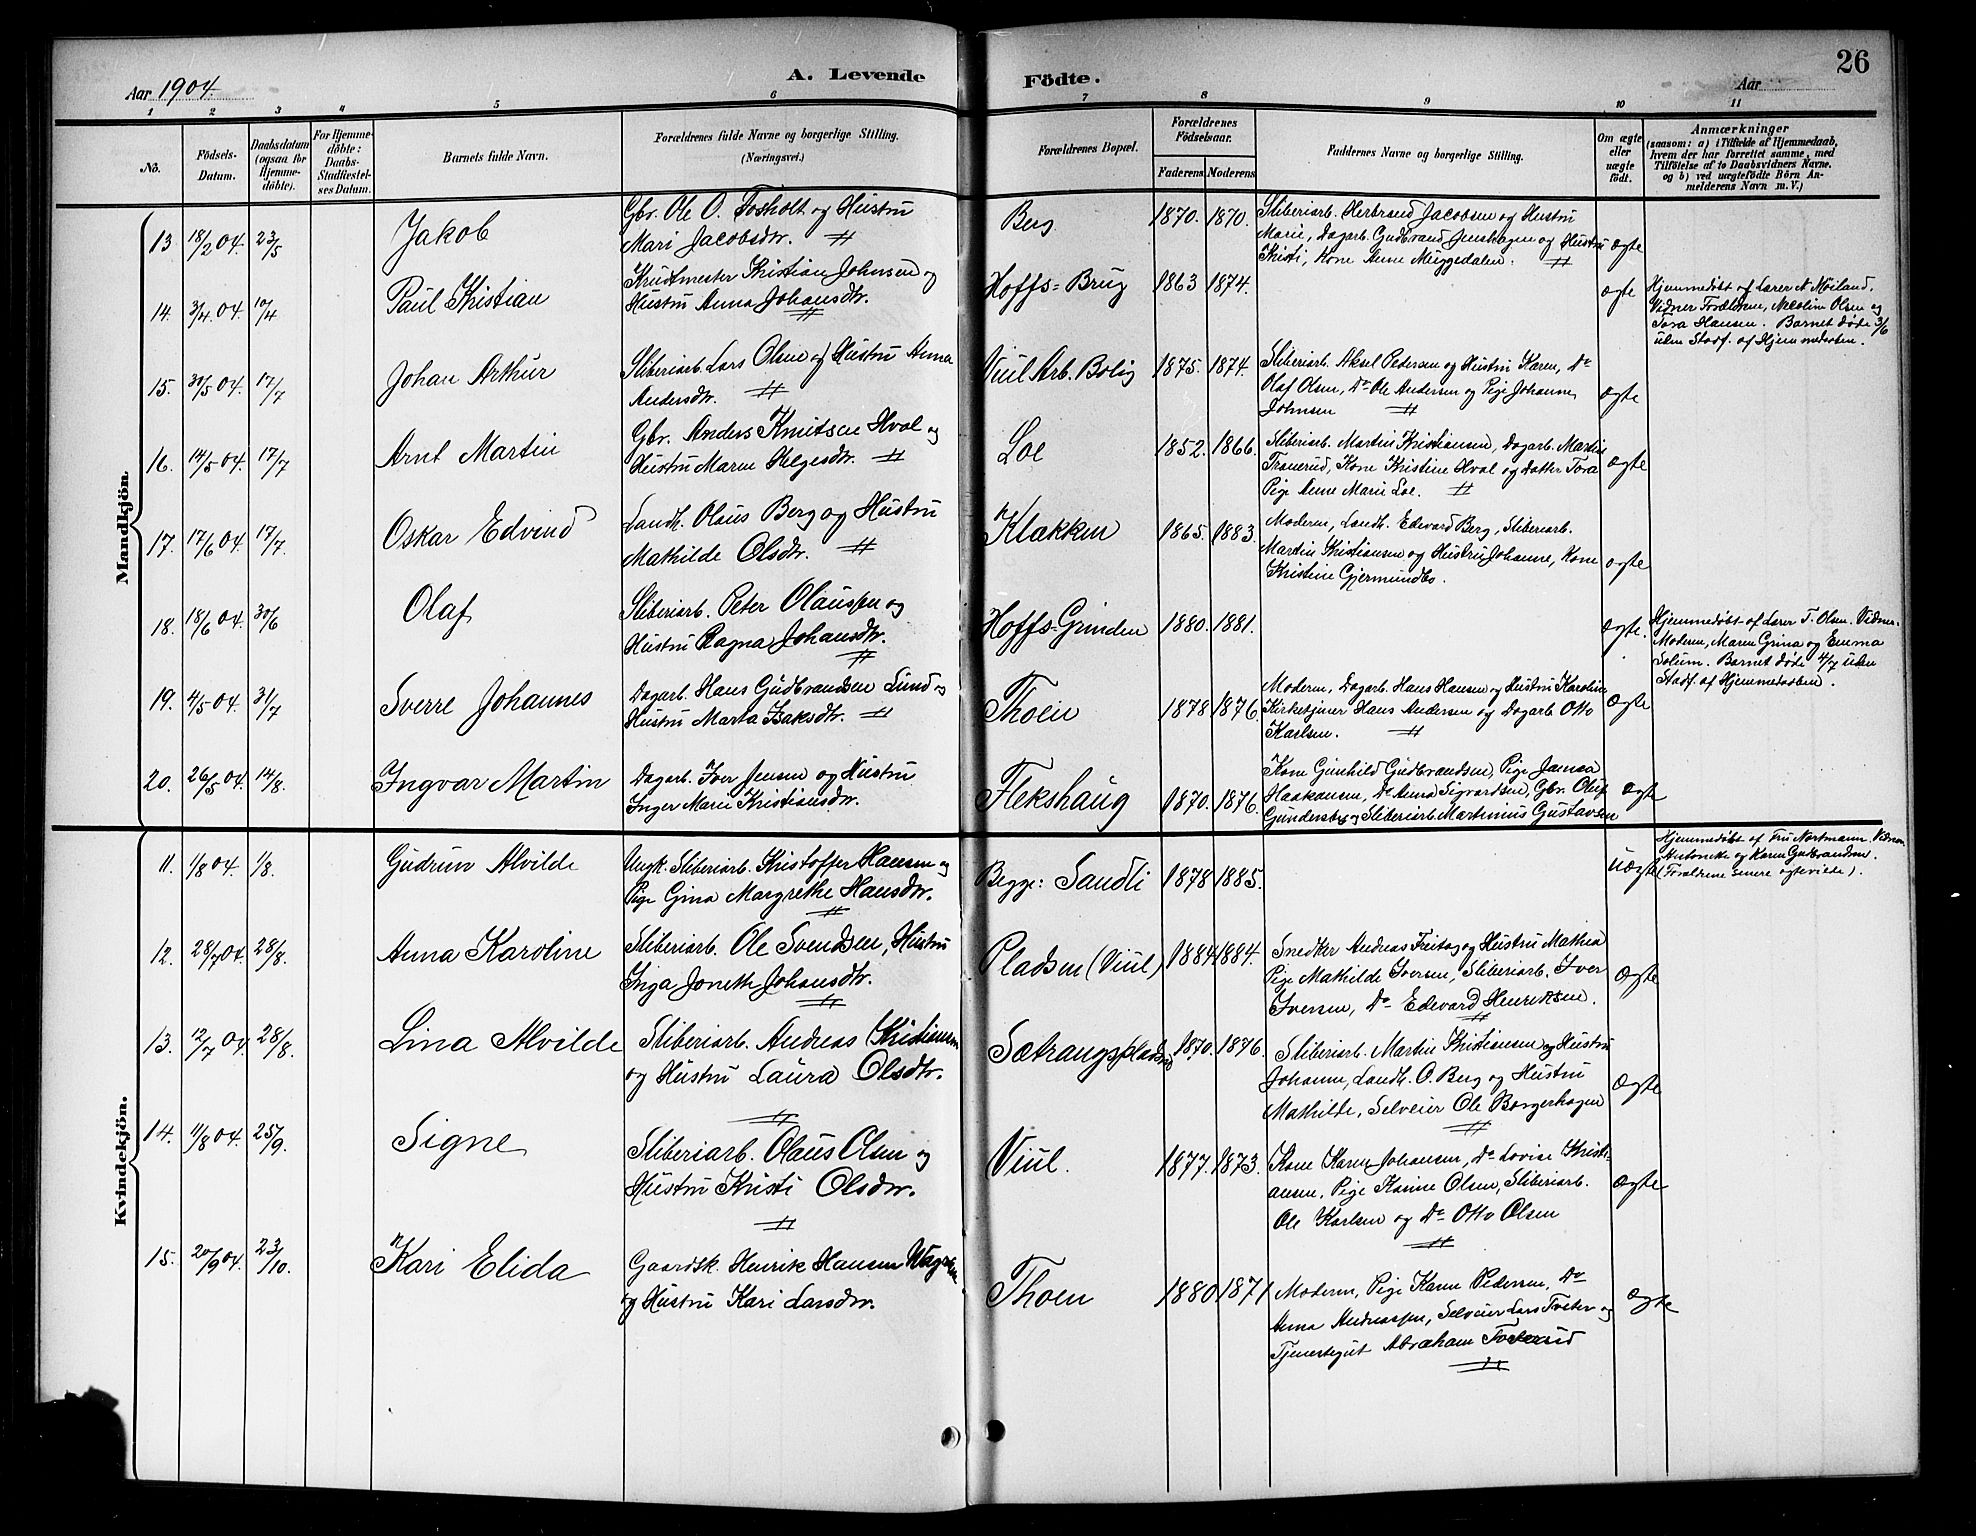 26
Aar 1904.
A. Levende Födte.
Aar
1 2 3 4 5 6 7 8 9 10 11
No.
Födsels-Datum.
Daabsdatum (ogsaa for Hjemme-döbte).
For Hjemme-döbte: Daabs-Stadfæstel-ses Datum.
Barnets fulde Navn.
Forældrenes fulde Navne og borgerlige Stilling. (Næringsvei.)
Forældrenes Bopæl.
Forældrenes Födselsaar.
Faderens Moderens
Faddernes Navne og borgerlige Stilling.
Om ægte eller uægte födt.
Anmærkninger
(saasom: a) i Tilfælde af Hjemmedaab,
hvem der har forrettet samme, med
Tilföielse af to Daabsvidners Navne.
og b) ved uægtefödte Börn An-
melderens Navn m. V.)
Mandkjön.
13. 18/2 04. 23/5 Jakob
Gbr. Ole O. Fosholt og Hustru
Mari Jacobsdtr.
Berg 1870. 1870.
Sliberiarb. Herbrand Jacobsen og Hustru
Marie, Dagarb. Gudbrand Jenshagen og Hustru
Kristi, Kone Anne Muggedalen.
ægte
14. 3/4 04. 10/4 Paul Kristian
Krudtmester Kristian Johnsen og
Hustru Anna Johansdtr.
Hoffs-Brug 1863 1874. ægte
Hjemmedøbt af Lærer N. Möiland.
Vidner Forældrene, Nicoline Olsen og
Tora Hansen. Barnet døde 3/6
uden Stadf. af Hjemmedaaben.
15. 30/5 04. 17/7 Johan Arthur
Sliberiarb. Lars Olsen og Hustru Anna
Andersdtr.
Viul Arb. Bolig 1875. 1874.
Sliberiarb. Aksel Pedersen og Hustru Karen, Do
Olaf Olsen, Do Ole Andersen og Pige Johanne
Johnsen
ægte
16. 14/5 04. 17/7 Arnt Martin
Gbr. Anders Knutsen Hval og
Hustru Maren Helgesdtr.
Loe 1852. 1866.
Sliberiarb. Martin Kristiansen, Dagarb. Martin
Tranerud, Kone Kristine Hval og Datter Tora
Pige Anne Marie Loe.
ægte
17. 17/6 04. 17/7. Oskar Edvind
Landh. Olaus Berg og Hustru
Mathilde Olsdtr.
Klækken 1865. 1883.
Moderen, Landh. Edevard Berg, Sliberiarb.
Martin Kristiansen og Hustru Johanne, Kone
Kristine Gjermundbo.
ægte
18. 18/6 04. 30/6 Olaf
Sliberiarb. Peter Olaussen og
Hustru Ragna Johansdtr.
Hoffs-Grinden 1880. 1881. ægte.
Hjemmedøbt af Lærer T. Olsen. Vidner
Moderen, Maren Grina og Emma
Solum. Barnet døde 4/7 uden
Stadf. af Hjemmedaaben.
19. 4/5 04. 31/7 Sverre Johannes
Dagarb. Hans Gudbrandsen Lund og
Hustru Marta Isaksdtr.
Thoen 1878 1876.
Moderen, Dagarb. Hans Hansen og Hustru Karoline
Kirketjener Hans Andersen og Dagarb. Otto
Karlsen.
Ægte
20. 26/5 04. 14/8. Ingvar Martin
Dagarb. Iver Jensen og Hustru
Inger Marie Kristiansdtr.
Flekshaug 1870. 1876.
Kone Gunhild Gudbrandsen, Pige
Haakonsen, Do Anna Sigvardsen, Gbr. Oluf
Gundersby og Sliberiarb. Martinius Gustavsen
Ægte
Kvindekjön.
11. 1/8 04. 1/8. Gudrun Alvilde
Ungk. Sliberiarb. Kristoffer Hansen og
Pige Gina Margrethe Hansdtr.
Begge: Sandli 1878 1885. Uægte
Hjemmedøbt af Fru Nortmann. Vidner
Antonette og Karen Gudbrandsen.
(Forældrene senere ægteviede).
12. 28/7 04. 28/8. Anna Karoline
Sliberiarb. Ole Svendsen, Hustru
Inga Jonette Johansdtr.
Pladsen (Viul) 1884 1884.
Snedker Andreas Freitag og Hustru Mathea
Pige Mathilde Iversen, Sliberiarb. Iver
Iversen, Do Edevard Henriksen.
Ægte
13. 12/7 04. 28/8. Lina Alvilde
Sliberiarb. Andreas Kristiansen
og Hustru Laura Olsdtr.
Sætrangspladsen 1870. 1876.
Sliberiarb. Martin Kristiansen og Hustru
Johanne, Landh. O. Berg og Hustru
Mathilde, Selveier Ole Borgerhagen
Ægte
14. 11/8 04. 25/9. Signe
Sliberiarb. Olaus Olsen og
Hustru Kristi Olsdtr.
Viul. 1877. 1873.
Kone Karen Johansen, Do Lovise Kristi-
ansen, Pige Karine Olsen, Sliberiarb.
Ole Karlsen og Do Otto Olsen
Ægte
15. 20/9 04. 23/10. Kari Elida
Gaardsk. Henrik Hansen
og Hustru Kari Larsdtr.
Thoen 1880 1871
Moderen, Pige Karen Pedersen, Do
Anna Andreassen, Selveier Lars Tveter og
Tjenestegut Abraham
Ægte